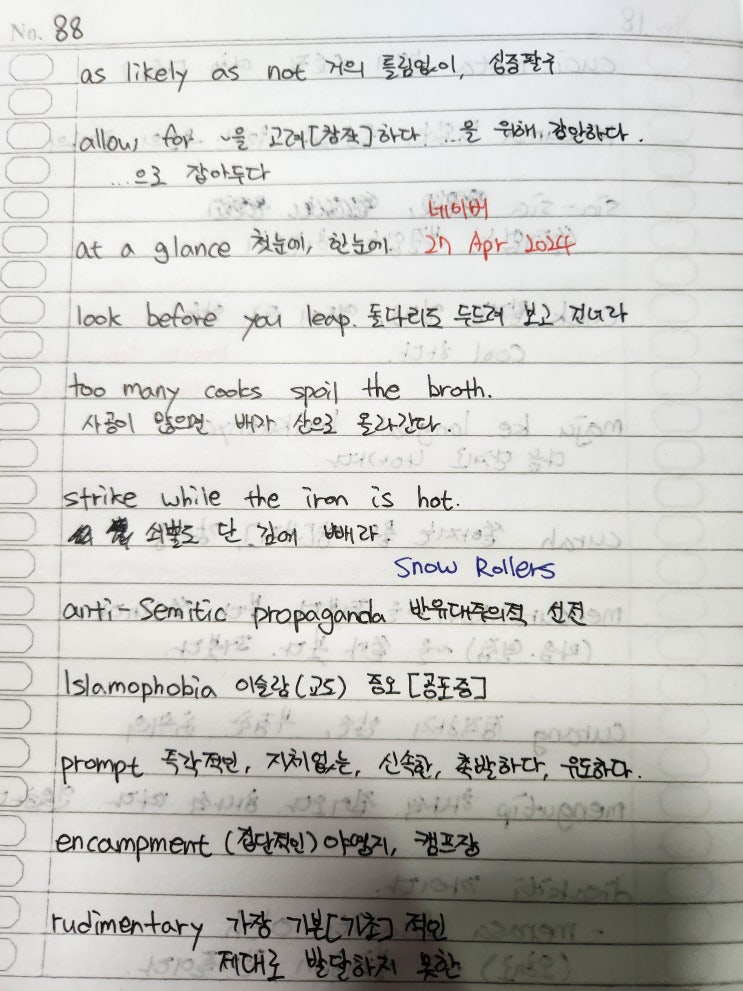 No. 88
as likely as not 거의 틀림없이, 십중팔구
allow for ~을 고려[참작]하다. ...을 위해, 감안하다.
...으로 잡아두다
네이버
at a glance 첫눈에, 한눈에. 27 Apr 2024
look before you leap. 돌다리도 두드려 보고 건너라
too many cooks spoil the broth.
사공이 많으면 배가 산으로 올라간다.
strike while the iron is hot.
쇠뿔도 단 김에 빼라!
Snow Rollers
anti-Semitic propaganda 반유대주의적 선전
Islamophobia 이슬람(교도) 증오[공포증]
prompt 즉각적인, 지체없는, 신속한, 촉발하다, 유도하다.
encampment (집단적인) 야영지, 캠프장
rudimentary 가장 기본[기초]적인
제대로 발달하지 못한